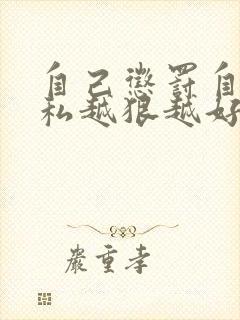 自己惩罚自
私越狠越好
严重孝